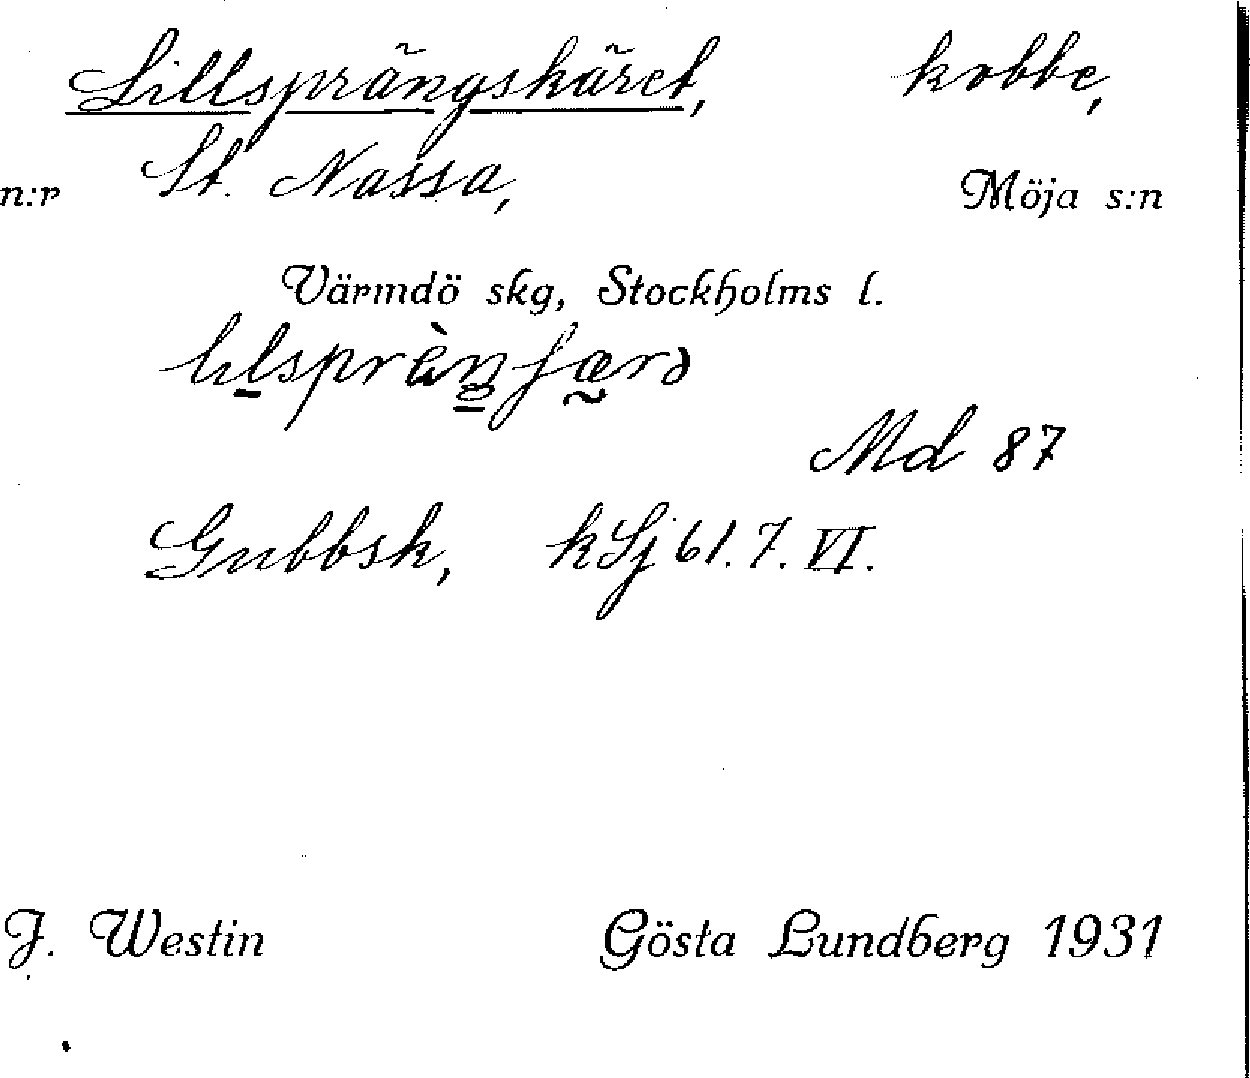 Lillsprängskäret, kobbe,
n:r St. Nassa, Möja s:n
Värmdö skg, Stockholms l.
Md 87
Gubbsk, kSj 61. 7. VI.
J. Westin Gösta Lundberg 1931